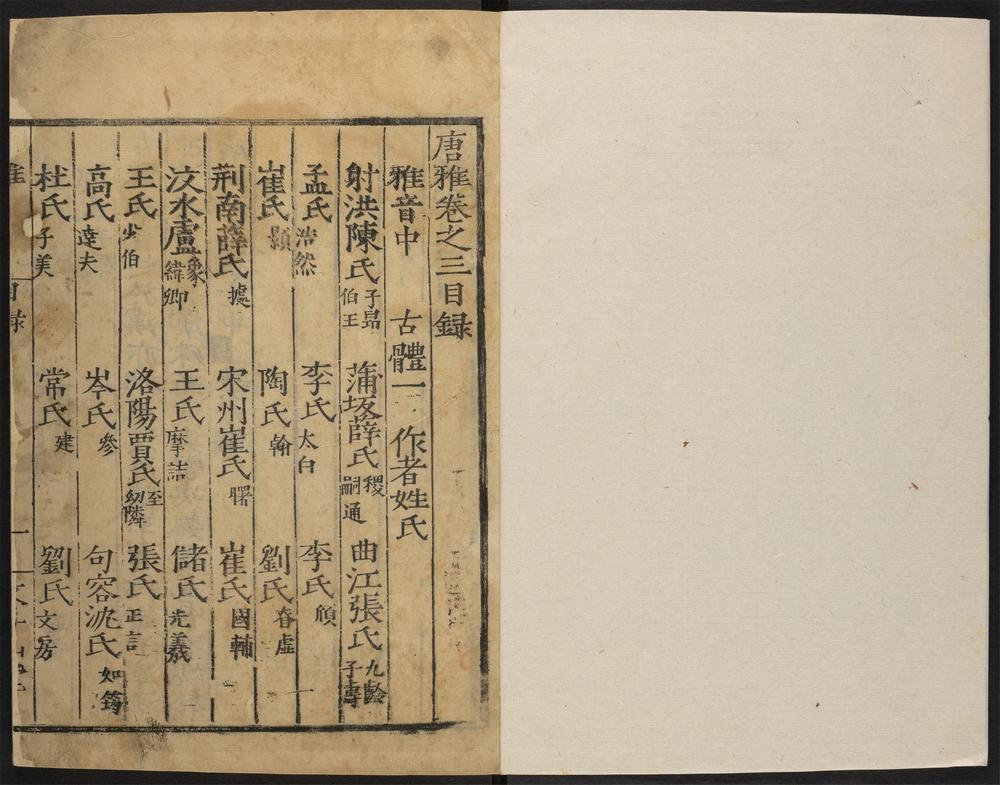 唐雅卷之三目録
雅音中 古體一 作者姓氏
射洪陳氏 子昻 伯王 蒲坂薛氏 稷 嗣通 曲江張氏 九齡 子壽
孟氏 浩然 李氏 太白 李氏 頎
崔氏 顥 陶氏 翰 劉氏 昚虛
荆南薛氏 據 宋州崔氏 曙 崔氏 國輔
汶水盧 象 緯卿 王氏 摩詰 儲氏 光羲
王氏 少伯 洛陽賈氏 至 幼隣 張氏 正言
高氏 達夫 岑氏 參 句容沈氏 如筠
杜氏 子美 常氏 建 劉氏 文房
目録 一